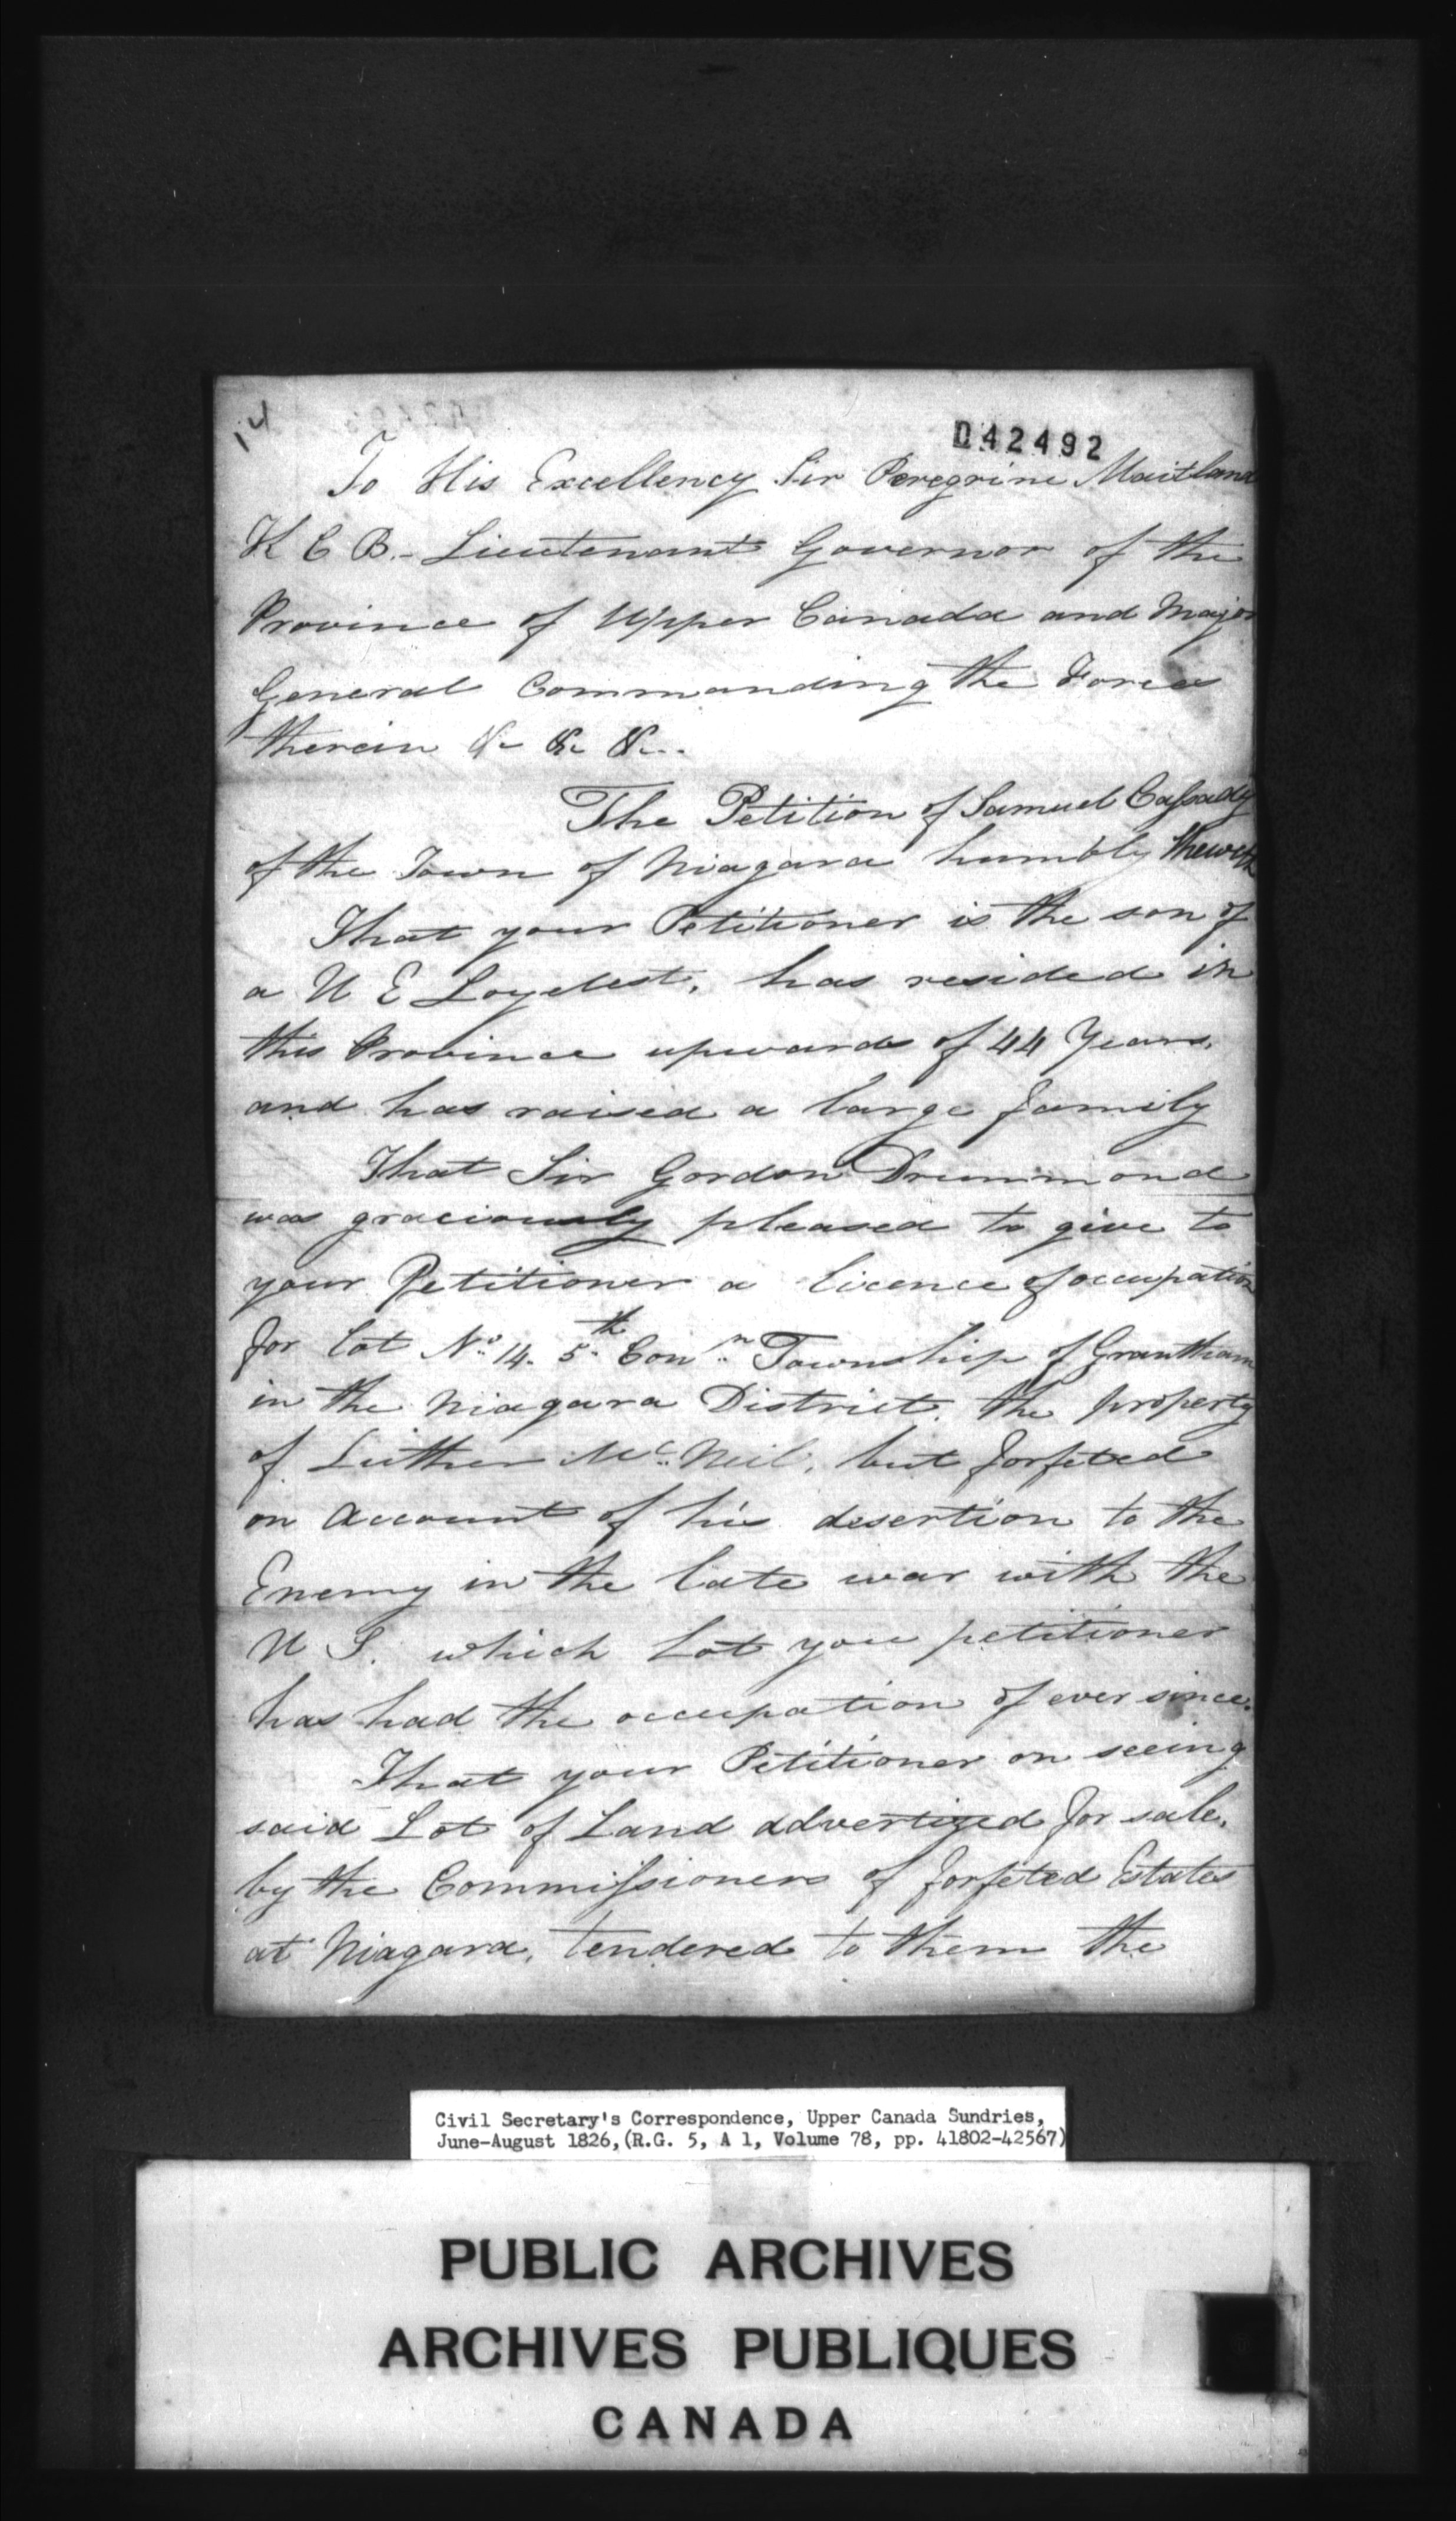 14
D42492
To His Excellency Sir Peregrine Maitland
K C B.- Lieutenant Governor of the
Province of Upper Canada and Major
General Commanding the Forces
therein &c &c &c..
The Petition of Samuel Caſsady
of the Town of Niagara humbly sheweth
That your Petitioner is the son of
a U E Loyelest, has resided in
this Province upwards of 44 Years.
and has raised a large family
That Sir Gordon Drummond
was graciously pleased to give to
your Petitioner a licence of occupation
for lot No. 14. 5th Conn. Township of Grantham
in the Niagara District. the property
of Luther McNeil, but forfeted
on account of his desertion to the
Enemy in the late war with the
U S. which Lot you petitioner
has had the occupation of ever since.
That your Petitioner on seeing
said Lot of Land advertized for sale,
by the Commiſsioners of forfeted Estates
at Niagara, tendered to them the
Civil Secretary's Correspondence, Upper Canada Sundries,
June-August 1826, (R.G. 5, A 1, Volume 78, pp. 41802-42567)
PUBLIC ARCHIVES
ARCHIVES PUBLIQUES
CANADA